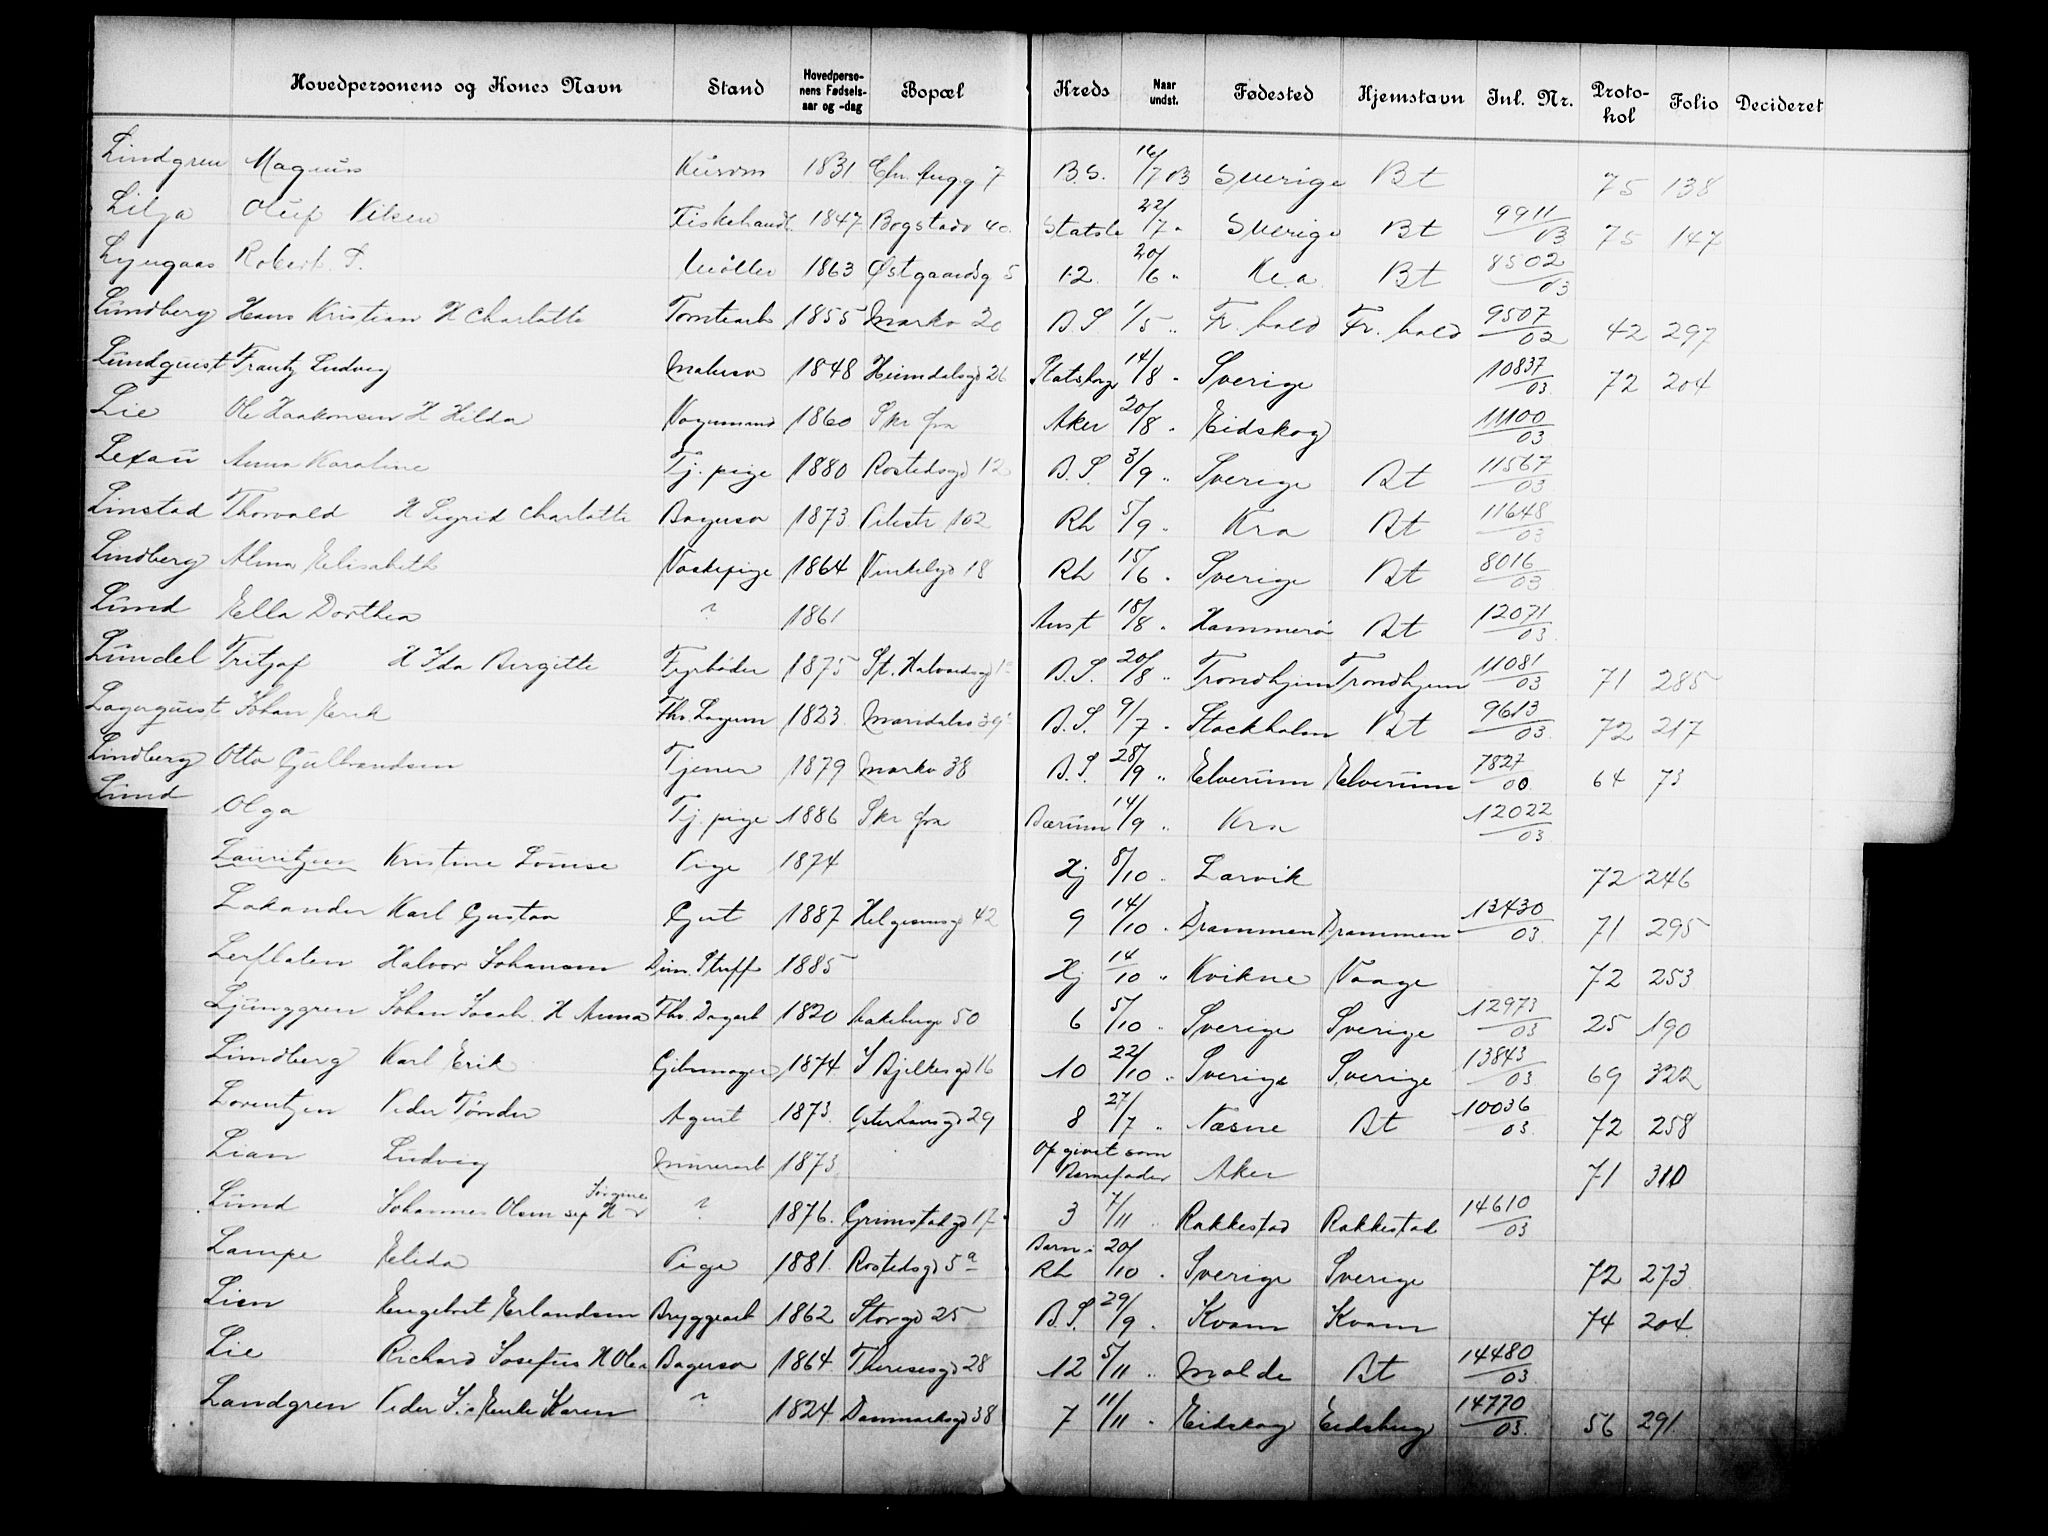 Hovedpersonens og Kones Navn Stand Hovedpersonens Fødselsaar og -dag Bopæl Kreds Naar undst. Fødested Hjemstavn Inl. Nr. Protokol Folio Decideret
Lindgren Magnus 1831 Chr. 7 B.S. 16/7 03 Sverige Bt 75 138
Lilja Oluf Nilsen Fiskehandl. 1847 Bogstadv 40 Statsb 22/7 " Sverige Bt 9911/03 75 147
Lyngaas Robert. Møller 1863 Østgaardsg 5 12 20/6 " Kr.a Bt 8502/03
Lundberg Hans Kristian H Charlotte Tomtearb 1855 Markv 20 B S 1/5 " Fr. hald Fr. hald 9507/02 42 297
Lundquist Frantz Ludvig Malersv 1848 Heimdalsgd 26 14/8 " Sverige 10837/03 72 204
Lie Ole Haakonsen H Hilda Vognmand 1860 Skr fra Aker 20/8 " Eidskog 11100/03
Lexau Anna Karoline Tj. pige 1880 Rostedsgd 12 B.S. 3/9 " Sverige Bt 11567/03
Linstad Thorvald H Sigrid Charlotte Bagersv 1873 Pilestr 102 Rh 5/9 " Kra Bt 11648/03
Lindberg Alma Elisabeth Vaskepige 1864 Vinkelgd 18 Rh 15/6 " Sverige Bt 8016/03
Lund Ella Dorthea ? 1861 Aust 18/8 " Hammerø Bt 12071/03
Lundel Fritjof H Ida Birgitte Fyrbøder 1875 St. Halvardsgd 1 B.S. 20/8 " Trondhjem Trondhjem 11081/03 71 285
Lagerquist Johan Erik Fhv. 1823 Maridalsv 39 B.S. 9/7 " Stockholm Bt 9613/03 72 217
Lindberg Otto Gulbrandsen Tjener 1879 Markv 38 B.S. 28/9 " Elverum Elverum 7827/00 64 73
Lund Olga Tj. pige 1886 Skr fra Bærum 14/9 " Kra 12022/03
Lauritzen Kristine Louise Pige 1874 Hj 8/10 " Larvik 72 246
Lakander Karl Gustav Gut 1887 Helgesensgd 42 9 14/10 " Drammen Drammen 13430/03 71 295
Lerflaten Halvor Johansen Dim. Straff 1885 Hj 14/10 " Kvikne Vaage 72 253
Ljunggren Johan Jacob. H Anna Fhv. Dagarb 1820 Lakkeg 50 6 5/10 " Sverige Sverige 12973/03 25 190
Lindberg Karl Erik Gibsmager 1874 J Bjelkesgd 16 10 22/10 " Sverige Sverige 13843/03 69 322
Lorentzen Peder Tønder Agent 1873 Osterhausgd 29 8 27/7 " Næsne Bt 10036/03 72 258
Lian Ludvig Murerarb 1873 Opgivet som Barnefader Aker 71 310
Lund Johannes Olsen sep H Jørgine ? 1876 Grimstadgd 17 3 7/11 " Rakkestad Rakkestad 14610/03
Lampe Elida Pige 1881 Rostedsgd 5a Barn i Rh 20/10 " Sverige Sverige 72 273
Lien Engebret Erlandsen Bryggearb 1862 Storgd 25 B.S. 29/9 " Kvam Kvam 74 204
Lie Richard Josefus H Olea Bagersv 1864 Theresesgd 28 12 5/11 " Molde Bt 14480/03
Landgren Peder Enke Karen ? 1824 Danmarksgd 38 7 11/11 " Eidskog Eidskog 14770/03 56 291